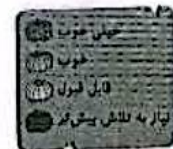 خیلی خوب
خوب
قابل قبول
نیاز به تلاش بیش‌تر